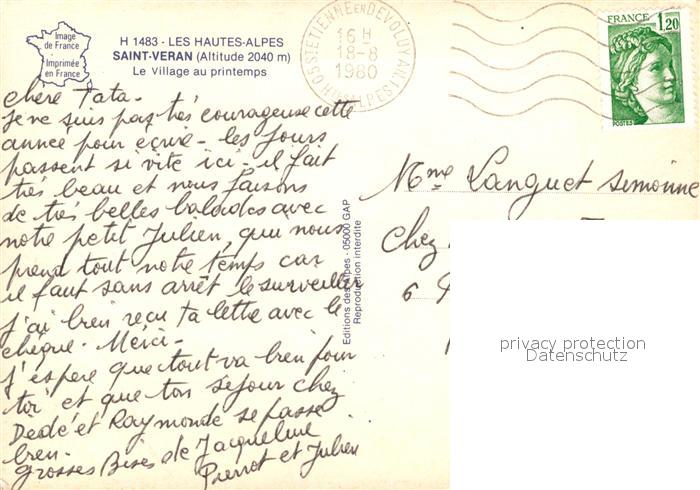 Image
de France
Imprimée
en France
H 1483 - LES HAUTES-ALPES
SAINT-VERAN (Altitude 2040 m)
Le Village au printemps
05 ST ETIENNE EN DEVOLUY
16 H
18-8
1980
HTES ALPES
FRANCE
1,20
POSTES
chère Tata -
Je ne suis pas très courageuse cette
année pour écrire - les jours
passent si vite ici - il fait
très beau et nous faisons
de très belles balades avec
notre petit Julien, qui nous
prend tout notre temps car
il faut sans arrêt le surveiller
j'ai bien reçu ta lettre avec le
chèque. Merci -
J'espère que tout va bien pour
toi et que ton séjour chez
Dédé et Raymonde se passe
bien.
Grosses Bises de Jacqueline
Pierrot et Julien
Editions des Alpes - 05000 GAP
Reproduction interdite
Mme Languet Simonne
Chez
6
privacy protection
Datenschutz